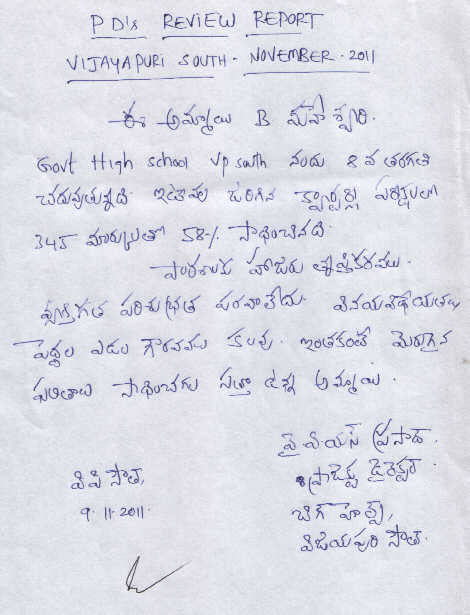 PD's REVIEW REPORT
VIJAYAPURI SOUTH - NOVEMBER - 2011
ఈ అమ్మాయి B మహేశ్వరి.
Govt High school Vp south నందు 8 వ తరగతి
చదువుతున్నది ఇటీవల జరిగిన క్వార్టర్లీ పరీక్షలలో
345 మార్కులతో 58% సాధించినది.
పాఠశాలకు హాజరు తృప్తికరము.
వ్యక్తిగత పరిశుభ్రత పరవాలేదు. వినయవిధేయతలు
పెద్దల ఎడల గౌరవము కలవు. ఇంతకంటే మెరుగైన
ఫలితాలు సాధించగల సత్తా ఉన్న అమ్మాయి.
వై వియస్ ప్రసాద్.
ప్రాజెక్టు డైరెక్టర్.
వి పి సౌత్,
9.11.2011.
బిగ్ హెల్ప్,
విజయపురి సౌత్.